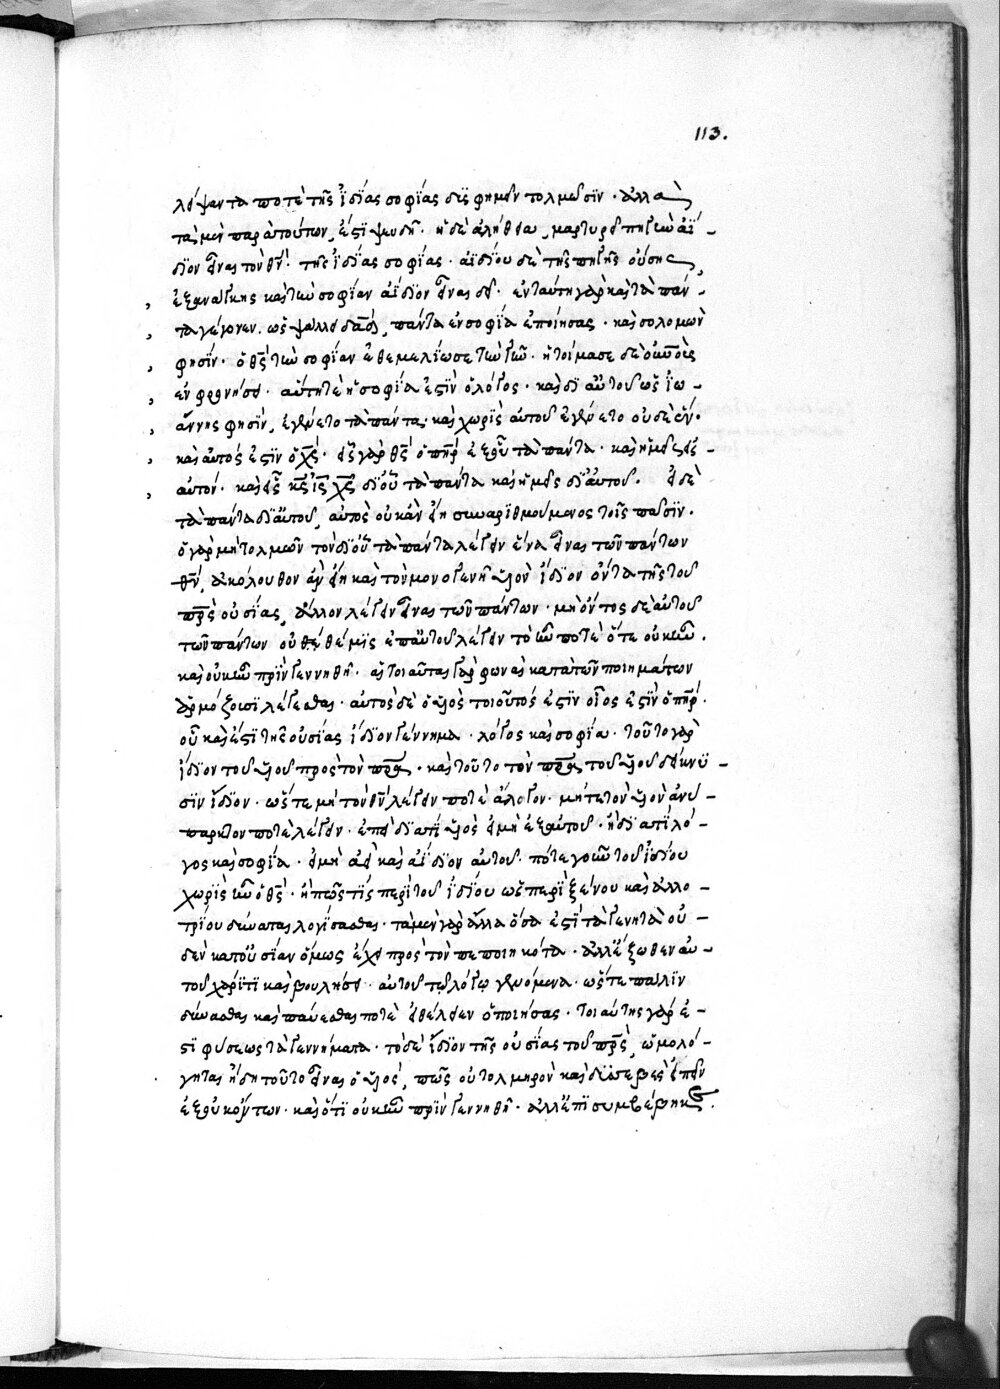 113.
λείψαντά ποτε τῆς ἰδίας σοφίας δυσφημεῖν τολμῶσιν· ἀλλὰ
τὰ μὲν παρὰ τούτων, ἐστὶ ψευδῆ· ἡ δὲ ἀλήθεια, μαρτυρεῖ πηγὴν ἀΐ-
διον εἶναι τὸν θν̄· τῆς ἰδίας σοφίας· ἀϊδίου δὲ τῆς πηγῆς οὔσης,
ἐξ ἀνάγκης καὶ τὴν σοφίαν ἀΐδιον εἶναι δεῖ· ἐν ταύτῃ γὰρ καὶ τὰ πάν-
τα γέγονεν. ὡς ψάλλει δᾱδ, πάντα ἐν σοφίᾳ ἐποίησας· καὶ σολομὼν
φησίν· ὁ θς̄ τῇ σοφίᾳ ἐθεμελίωσε τὴν γῆν· ἡτοίμασε δὲ οὐνοὺς
ἐν φρονήσει· αὕτη τε ἡ σοφία ἐστὶν ὁ λόγος· καὶ δι' αὐτοῦ ὡς ἰω-
άννης φησὶν, ἐγένετο τὰ πάντα· καὶ χωρὶς αὐτοῦ ἐγένετο οὐδὲ ἕν·
καὶ αὐτός ἐστιν ὁ χς̄· εἷς γὰρ θς̄ ὁ πη̄ρ ἐξ οὗ τὰ πάντα· καὶ ἡμεῖς εἰς
αὐτόν· καὶ εἷς κς̄ ις̄ χς̄ δι' οὗ τὰ πάντα καὶ ἡμεῖς δι' αὐτοῦ· εἰ δὲ
τὰ πάντα δι' αὐτοῦ, αὐτὸς οὐκ ἂν εἴη συναριθμούμενος τοῖς πᾶσιν·
ὁ γὰρ μὴ τολμῶν τὸν δι' οὗ τὰ πάντα λέγειν ἕνα εἶναι τῶν πάντων
θν̄, ἀκόλουθον ἂν εἴη καὶ τὸν μονογενῆ υἱὸν ἴδιον ὄντα τῆς τοῦ
πρ̄ς οὐσίας, ἄλλον λέγειν εἶναι τῶν πάντων· μὴ ὄντος δὲ αὐτοῦ
τῶν πάντων οὐ θέμις ἐπ' αὐτοῦ λέγειν τὸ ἦν ποτὲ ὅτε οὐκ ἦν·
καὶ οὐκ ἦν πρὶν γεννηθῇ· αἱ τοιαῦται γὰρ φωναὶ κατὰ τῶν ποιημάτων
ἁρμόζουσι λέγεσθαι· αὐτὸς δὲ ὁ υἱὸς τοιοῦτός ἐστιν οἷος ἐστὶν ὁ πη̄ρ·
οὗ καὶ ἐστὶ τῆς οὐσίας ἴδιον γέννημα· λόγος καὶ σοφία· τοῦτο γὰρ
ἴδιον τοῦ υἱοῦ πρὸς τὸν πρ̄α· καὶ τοῦτο τὸν πρ̄α τοῦ υἱοῦ δείκνυ-
σιν ἴδιον· ὥστε μὴ τὸν θν̄ λέγειν ποτὲ ἄλογον· μήτε τὸν υἱὸν ἀνύ-
παρκτον ποτὲ λέγειν· ἐπεὶ διατί υἱὸς εἰ μὴ ἐξ αὐτοῦ· ἢ διατί λό-
γος καὶ σοφία· εἰ μὴ ἀεὶ καὶ ἀΐδιον αὐτοῦ· πότε γοῦν τοῦ ἰδίου
χωρὶς ἦν ὁ θς̄· ἢ πῶς τις περὶ τοῦ ἰδίου ὡς περὶ ξένου καὶ ἀλλο-
τρίου δύναται λογίσασθαι· τὰ μὲν γὰρ ἄλλα ὅσα ἐστὶ τὰ γενητὰ οὐ-
δὲν κατ' οὐσίαν ὅμως ἔχει πρὸς τὸν πεποιηκότα· ἀλλ' ἔξωθεν αὐ-
τοῦ χάριτι καὶ βουλήσει· αὐτοῦ τῷ λόγῳ γενόμενα· ὥστε πάλιν
δύνασθαι καὶ παύεσθαι ποτὲ εἰ θέλειεν ὁ ποιήσας· τοιαύτης γάρ ἐ-
στι φύσεως τὰ γεννήματα· τὸ δὲ ἴδιον τῆς οὐσίας τοῦ πρ̄ς, ὡμολό-
γηται ἤδη τοῦτο εἶναι ὁ υἱὸς, πῶς οὐ τολμηρὸν καὶ δυσσεβὲς εἰπεῖν
ἐξ οὐκ ὄντων· καὶ ὅτι οὐκ ἦν πρὶν γεννηθῇ· ἀλλ' ἐπισυμβέβηκε·